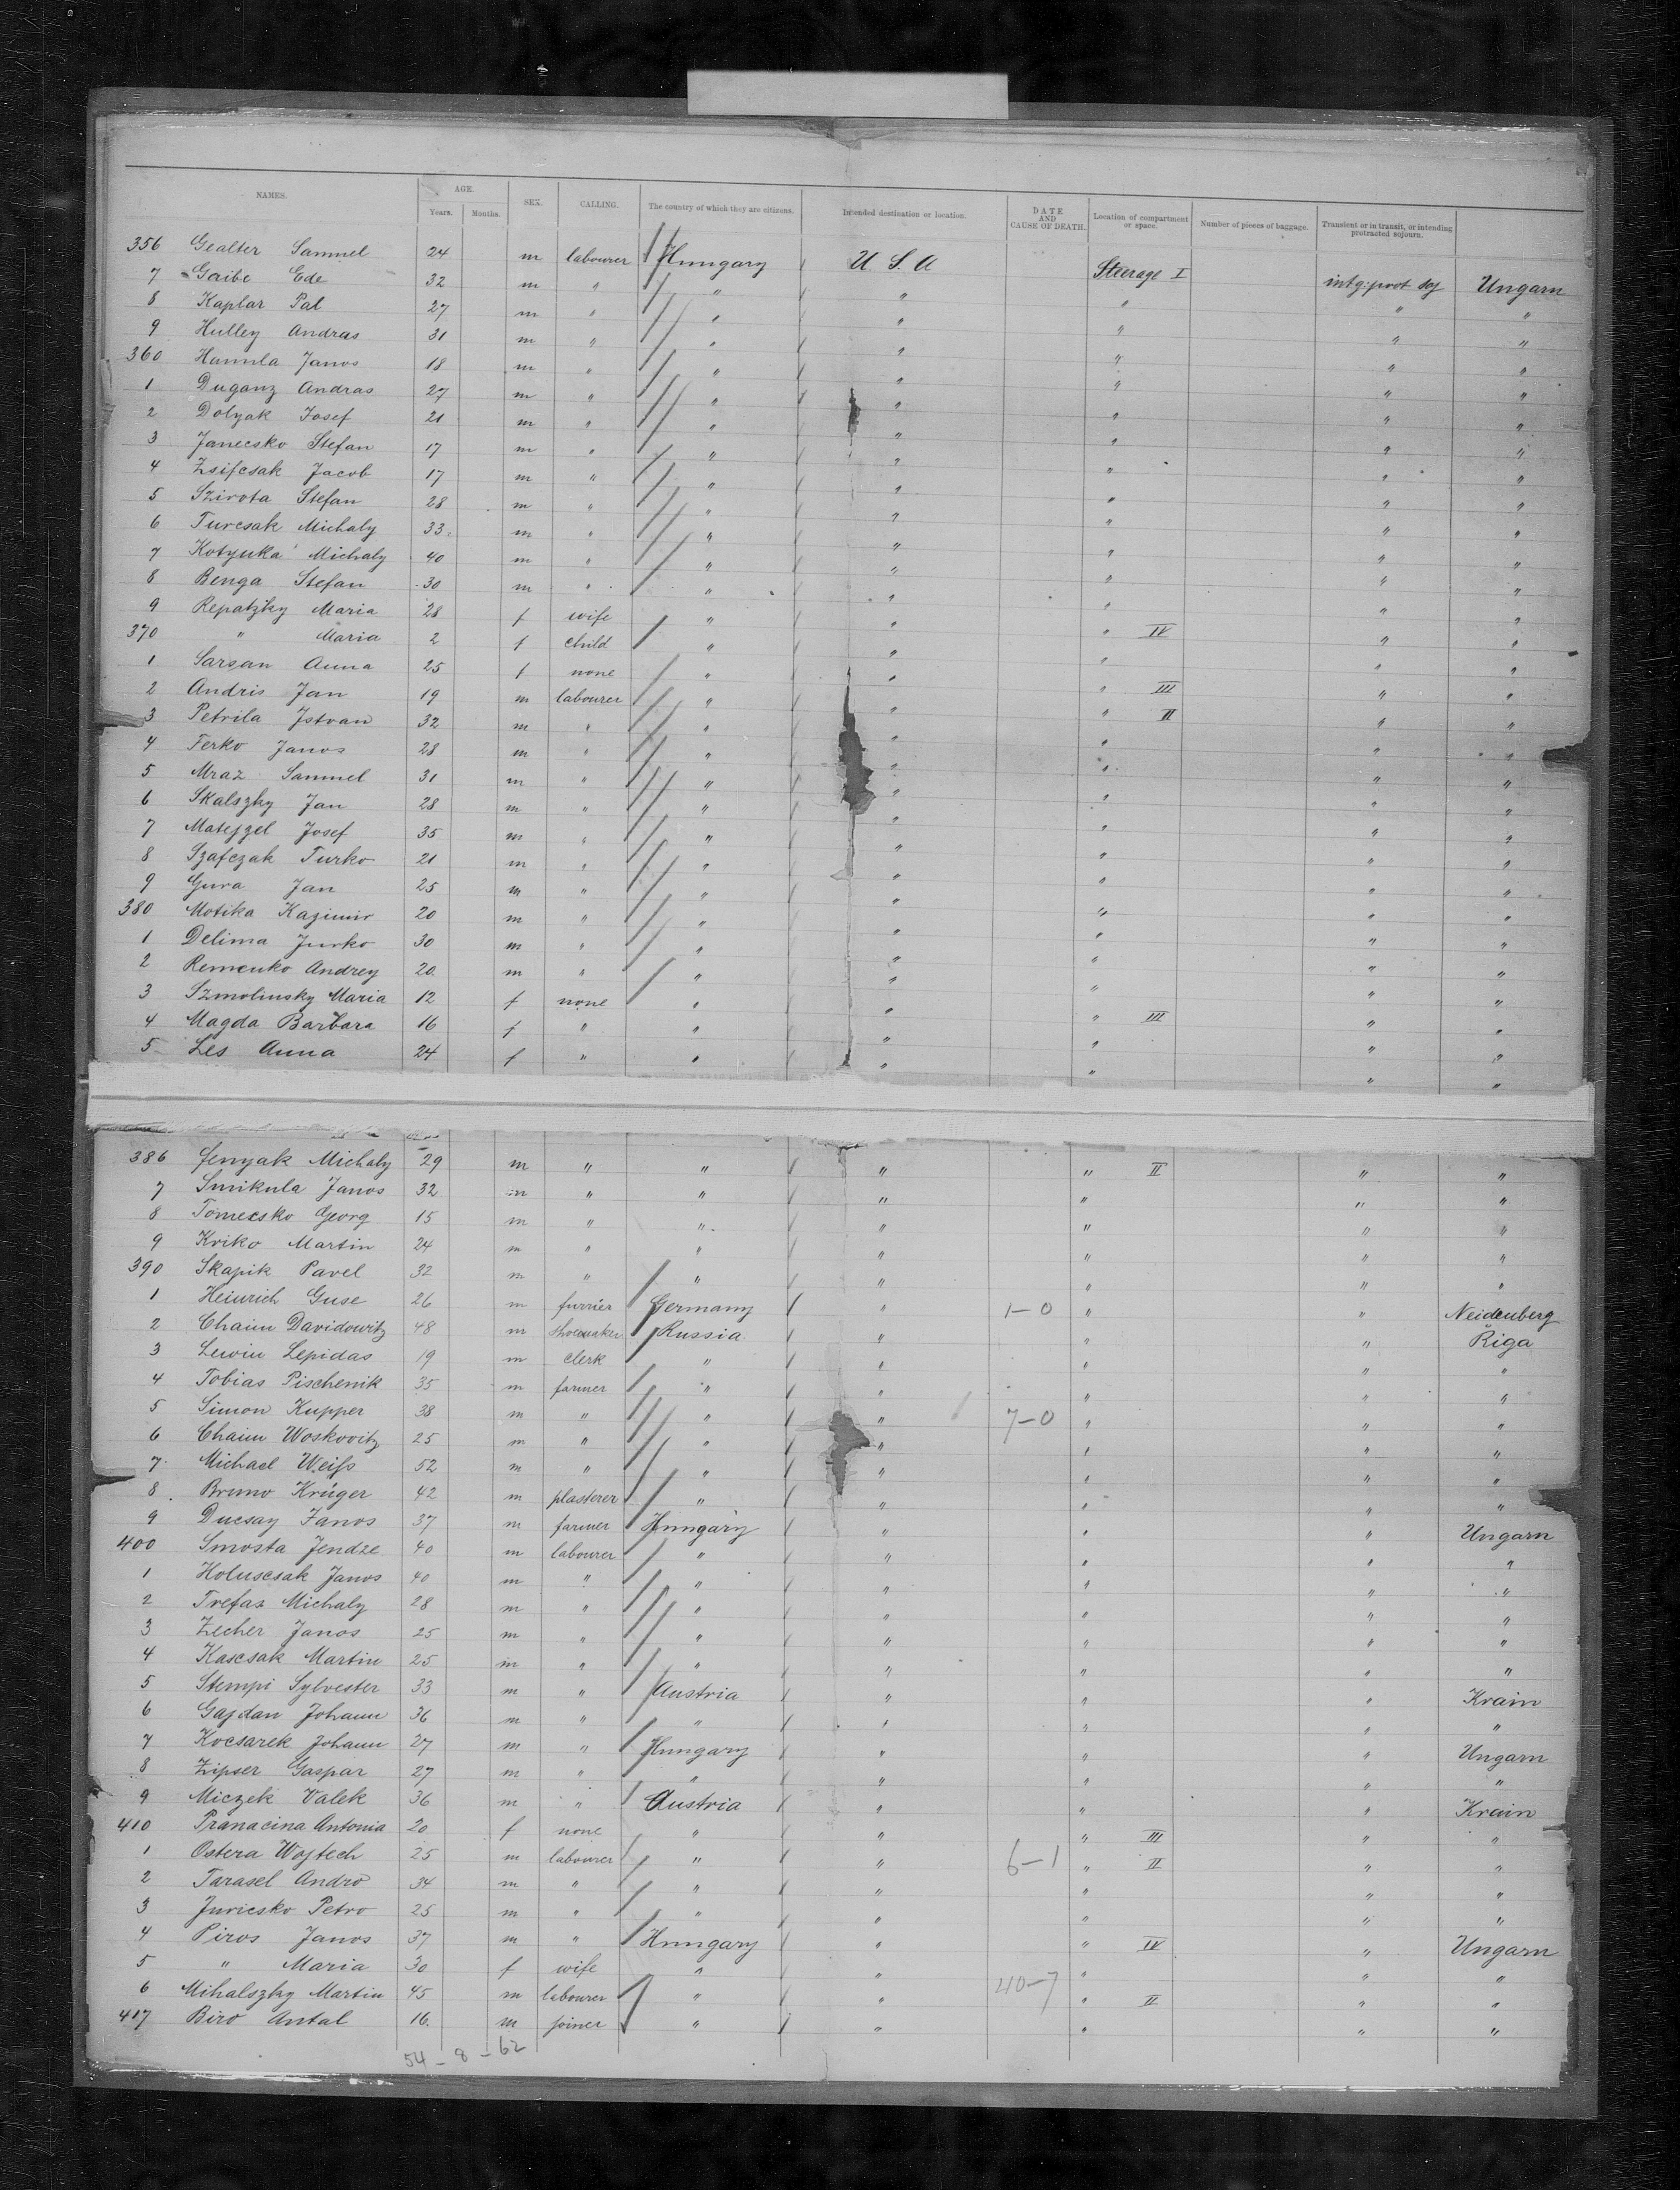 NAMES. AGE. SEX. CALLING. The country of which they are citizens. Intended destination or location. DATE AND CAUSE OF DEATH. Location of compartment or space. Number of pieces of baggage. Transient or in transit, or intending protracted sojourn.
Years. Months.
356 Gealter Samuel 24 m labourer Hungary U S A Steerage I intg: prot soj Ungarn
7 Gaibe Ede 32 m " " " " " "
8 Kaplar Pal 27 m " " " " " "
9 Hulley Andras 31 m " " " " " "
360 Hamula Janos 18 m " " " " " "
1 Duganz Andras 27 m " " " " " "
2 Dolyak Josef 21 m " " " " " "
3 Janecsko Stefan 17 m " " " " " "
4 Zsifcsak Jacob 17 m " " " " " "
5 Szirota Stefan 28 m " " " " " "
6 Turcsak Michaly 33 m " " " " " "
7 Kotyuka Michaly 40 m " " " " " "
8 Benga Stefan 30 m " " " " " "
9 Repatzky Maria 28 f wife " " " IV " "
370 " Maria 2 f child " " " " "
1 Sarsan Anna 25 f none " " " III " "
2 Andris Jan 19 m labourer " " " II " "
3 Petrila Jstvan 32 m " " " " " "
4 Ferko Janos 28 m " " " " " "
5 Mraz Samuel 31 m " " " " " "
6 Skalszky Jan 28 m " " " " " "
7 Matejzel Josef 35 m " " " " " "
8 Szafczak Turko 21 m " " " " " "
9 Gura Jan 25 m " " " " " "
380 Motika Kazimir 20 m " " " " " "
1 Delima Jurko 30 m " " " " " "
2 Remenko Andrey 20 m " " " " " "
3 Szmolinsky Maria 12 f none " " " III " "
4 Magda Barbara 16 f " " " " " "
5 Les Anna 24 f " " " " " "
386 Jenyak Michaly 29 m " " " " II " "
7 Smikula Janos 32 m " " " " " "
8 Tomecsko Georg 15 m " " " " " "
9 Kriko Martin 24 m " " " " " "
390 Skapik Pavel 32 m " " " " " "
1 Heinrich Guse 26 m furrier Germany " 1-0 " " Neidenberg
2 Chaim Davidowitz 48 m shoemaker Russia " " " Riga
3 Lewin Lepidas 19 m clerk " " " " "
4 Tobias Pischenik 35 m farmer " " " " "
5 Simon Kupper 38 m " " " 7-0 " " "
6 Chaim Woskovitz 25 m " " " " " "
7 Michael Weiss 52 m " " " " " "
8 Bruno Krüger 42 m plasterer " " " " "
9 Ducsay Janos 37 m farmer Hungary " " " Ungarn
400 Smosta Jendze 40 m labourer " " " " "
1 Holuscsak Janos 40 m " " " " " "
2 Trefas Michaly 28 m " " " " " "
3 Zecher Janos 25 m " " " " " "
4 Kascsak Martin 25 m " " " " " "
5 Stempi Sylvester 33 m " Austria " " " Krain
6 Gajdan Johann 36 m " " " " " "
7 Kocsarek Johann 27 m " Hungary " " " Ungarn
8 Zipser Gaspar 27 m " " " " " "
9 Miczek Valek 36 m " Austria " " " Krain
410 Pranacina Antonia 20 f none " " " III " "
1 Ostera Wojtech 25 m labourer " " 6-1 " II " "
2 Tarasel Andro 34 m " " " " " "
3 Juricsko Petro 25 m " " " " " "
4 Piros Janos 37 m " Hungary " " IV " Ungarn
5 " Maria 30 f wife " " " " "
6 Mihalszky Martin 45 m labourer " " 40-7 " II " "
417 Biro Antal 16 m joiner " " " " "
54 - 8 - 62